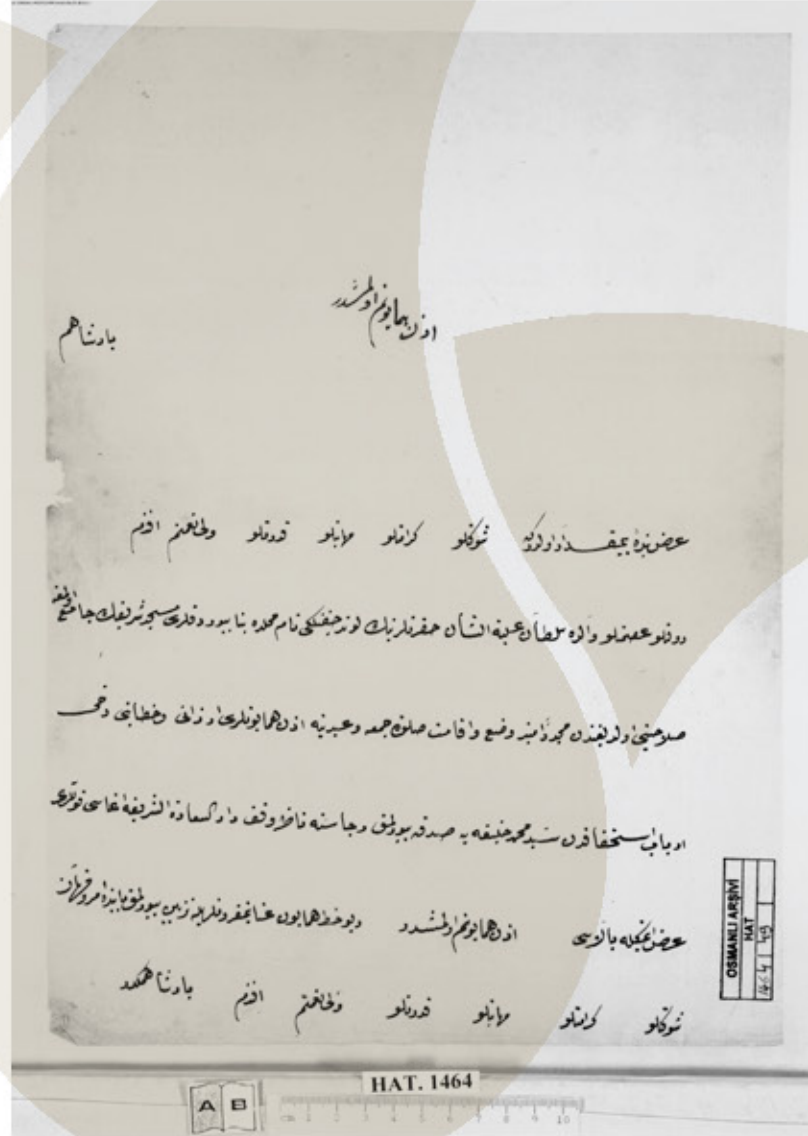 اذن همايونم اولمشدر
پادشاهم
عرض بنده بيمقدار اولدر كه شوكتلو كرامتلو مهابتلو قدرتلو ولی نعمتم افندم
دولتلو عصمتلو والده سلطان علية الشان حضرتلرينك لوند چفتلكی نام محلده بنا بيوردقلری مسجد شريفك جامع اولمغه
صلاحيتی اولديغندن مجددا منبر وضع واقامت صلوة جمعه وعيدينه اذن همايونلری ارزانی وخطابتی دخی
ارباب استحقاقدن سيد محمد خليفه يه صدقه بيورلمق رجاسنه ناظر وقف دار السعادة الشريفه اغاسی قوللری
عرض ايتمكله بالاسی اذن همايونم اولمشدر ديو خط همايون عنايتمقرونلريله تزيين بيورلمق بابنده امر وفرمان
شوكتلو كرامتلو مهابتلو قدرتلو ولی نعمتم افندم پادشاهمكدر
OSMANLI ARŞİVİ
HAT
1464 | 49
HAT. 1464
A B
cm 1 2 3 4 5 6 7 8 9 10